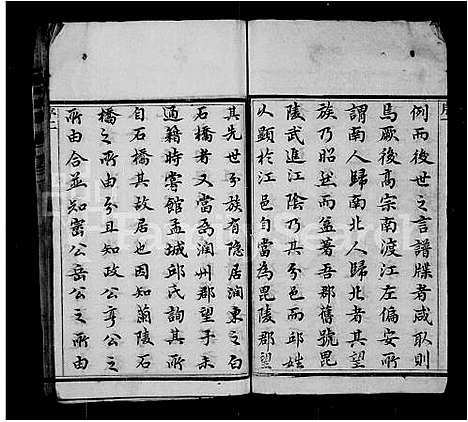 序
例而後世之言譜牒者咸取則
焉厥後高宗南渡江左偏安所
謂南人歸南北人歸北者其望
族乃昭然而益著吾郡舊號毘
陵武進江陰乃其分邑而邱姓
以顯於江邑自當為毘陵郡望
其先世分族有隱居澗東之白
石橋者又當為潤州郡望予未
通籍時嘗館孟城邱氏詢其所
自石橋其故居也因知蘭陵石
橋之所由分且知政公亨公之
所由合並知密公岳公之所由
序二